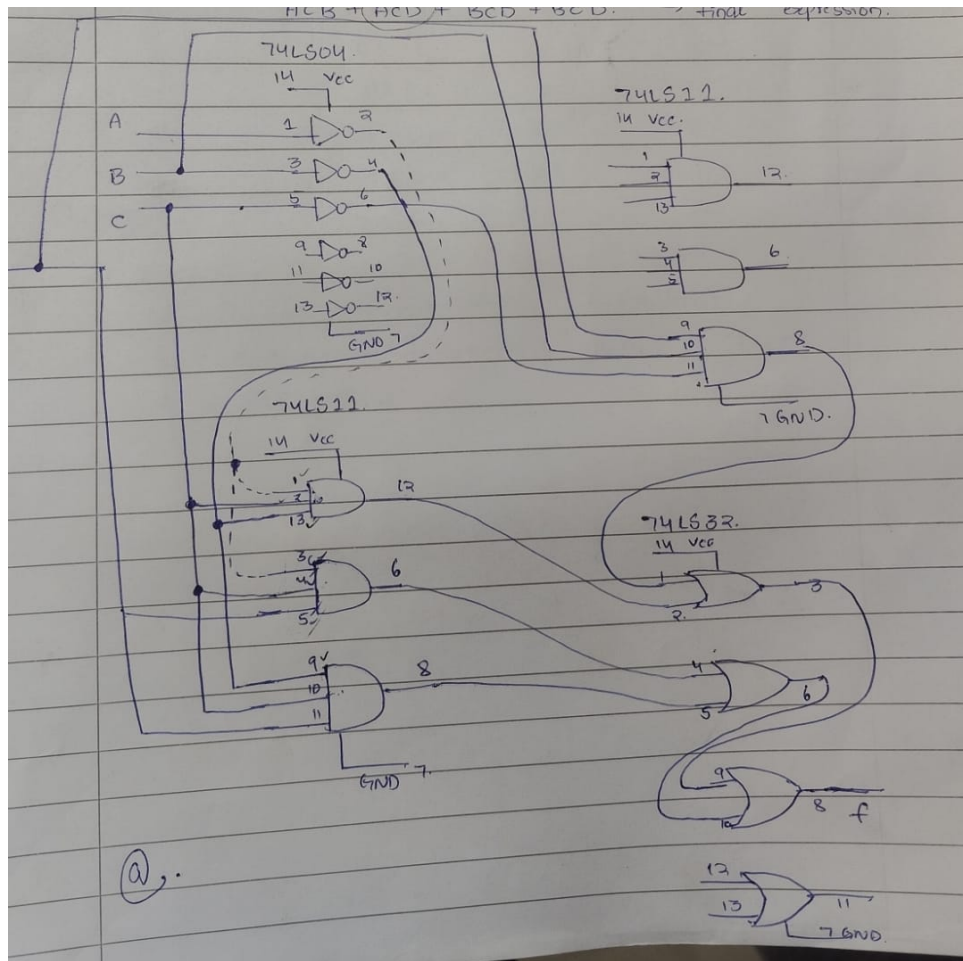 ACB + ACD + BCD + BCD. → final expression.
74LS04.
14 Vcc
A 1 2
B 3 4
C 5 6
9 8
11 10
13 12.
GND 7
74LS11.
14 Vcc.
1
2 12.
13
3
4 6.
5
9
10 8
11
7 GND.
74LS11.
14 Vcc
1
2 12
13
3
4 6
5
9
10 8
11
GND 7.
74LS32.
14 Vcc
1
2. 3
4
5 6
9
10 8 f
12
13 11
7 GND.
Q,.